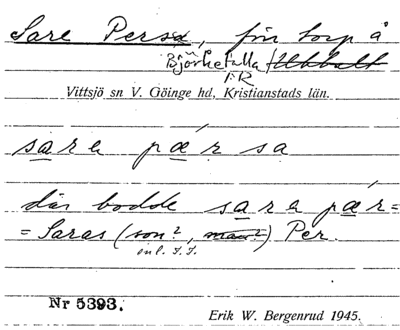 Sare Persa, förr torp å
Björkefalla / Ubbalt
FR
Vittsjö sn V. Göinge hd, Kristianstads län.
sare pær sa
där bodde sare pær=
= Saras (son?, man?) Per.
enl. S.S.
Nr 5393.
Erik W. Bergenrud 1945.